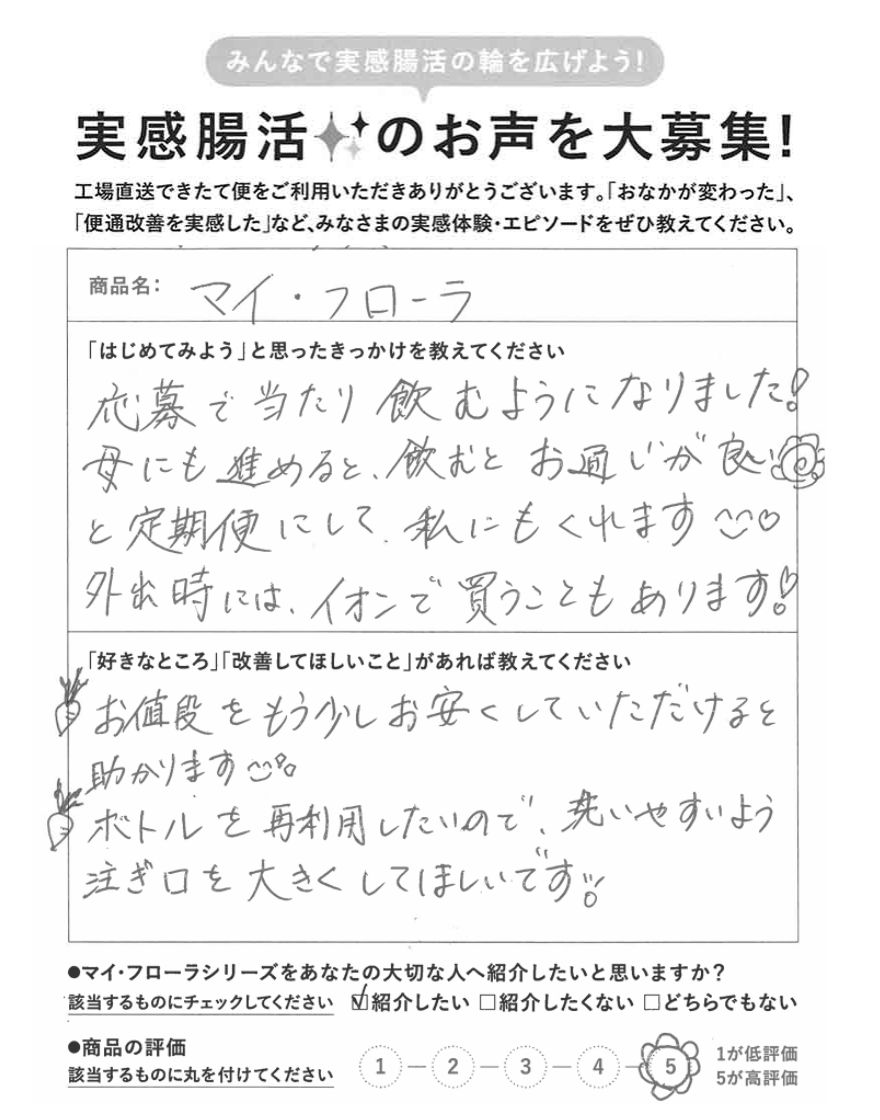 みんなで実感腸活の輪を広げよう!
実感腸活のお声を大募集!
工場直送できたて便をご利用いただきありがとうございます。「おなかが変わった」、
「便通改善を実感した」など、みなさまの実感体験・エピソードをぜひ教えてください。
商品名: マイ・フローラ
「はじめてみよう」と思ったきっかけを教えてください
応募で当たり飲むようになりました!
母にも進めると、飲むとお通じが良い
と定期便にして、私にもくれます
外出時には、イオンで買うこともあります!
「好きなところ」「改善してほしいこと」があれば教えてください
お値段をもう少しお安くしていただけると
助かります
ボトルを再利用したいので、洗いやすいよう
注ぎ口を大きくしてほしいです
●マイ・フローラシリーズをあなたの大切な人へ紹介したいと思いますか?
該当するものにチェックしてください ☑紹介したい □紹介したくない □どちらでもない
●商品の評価
該当するものに丸を付けてください 1 2 3 4 5
1が低評価
5が高評価